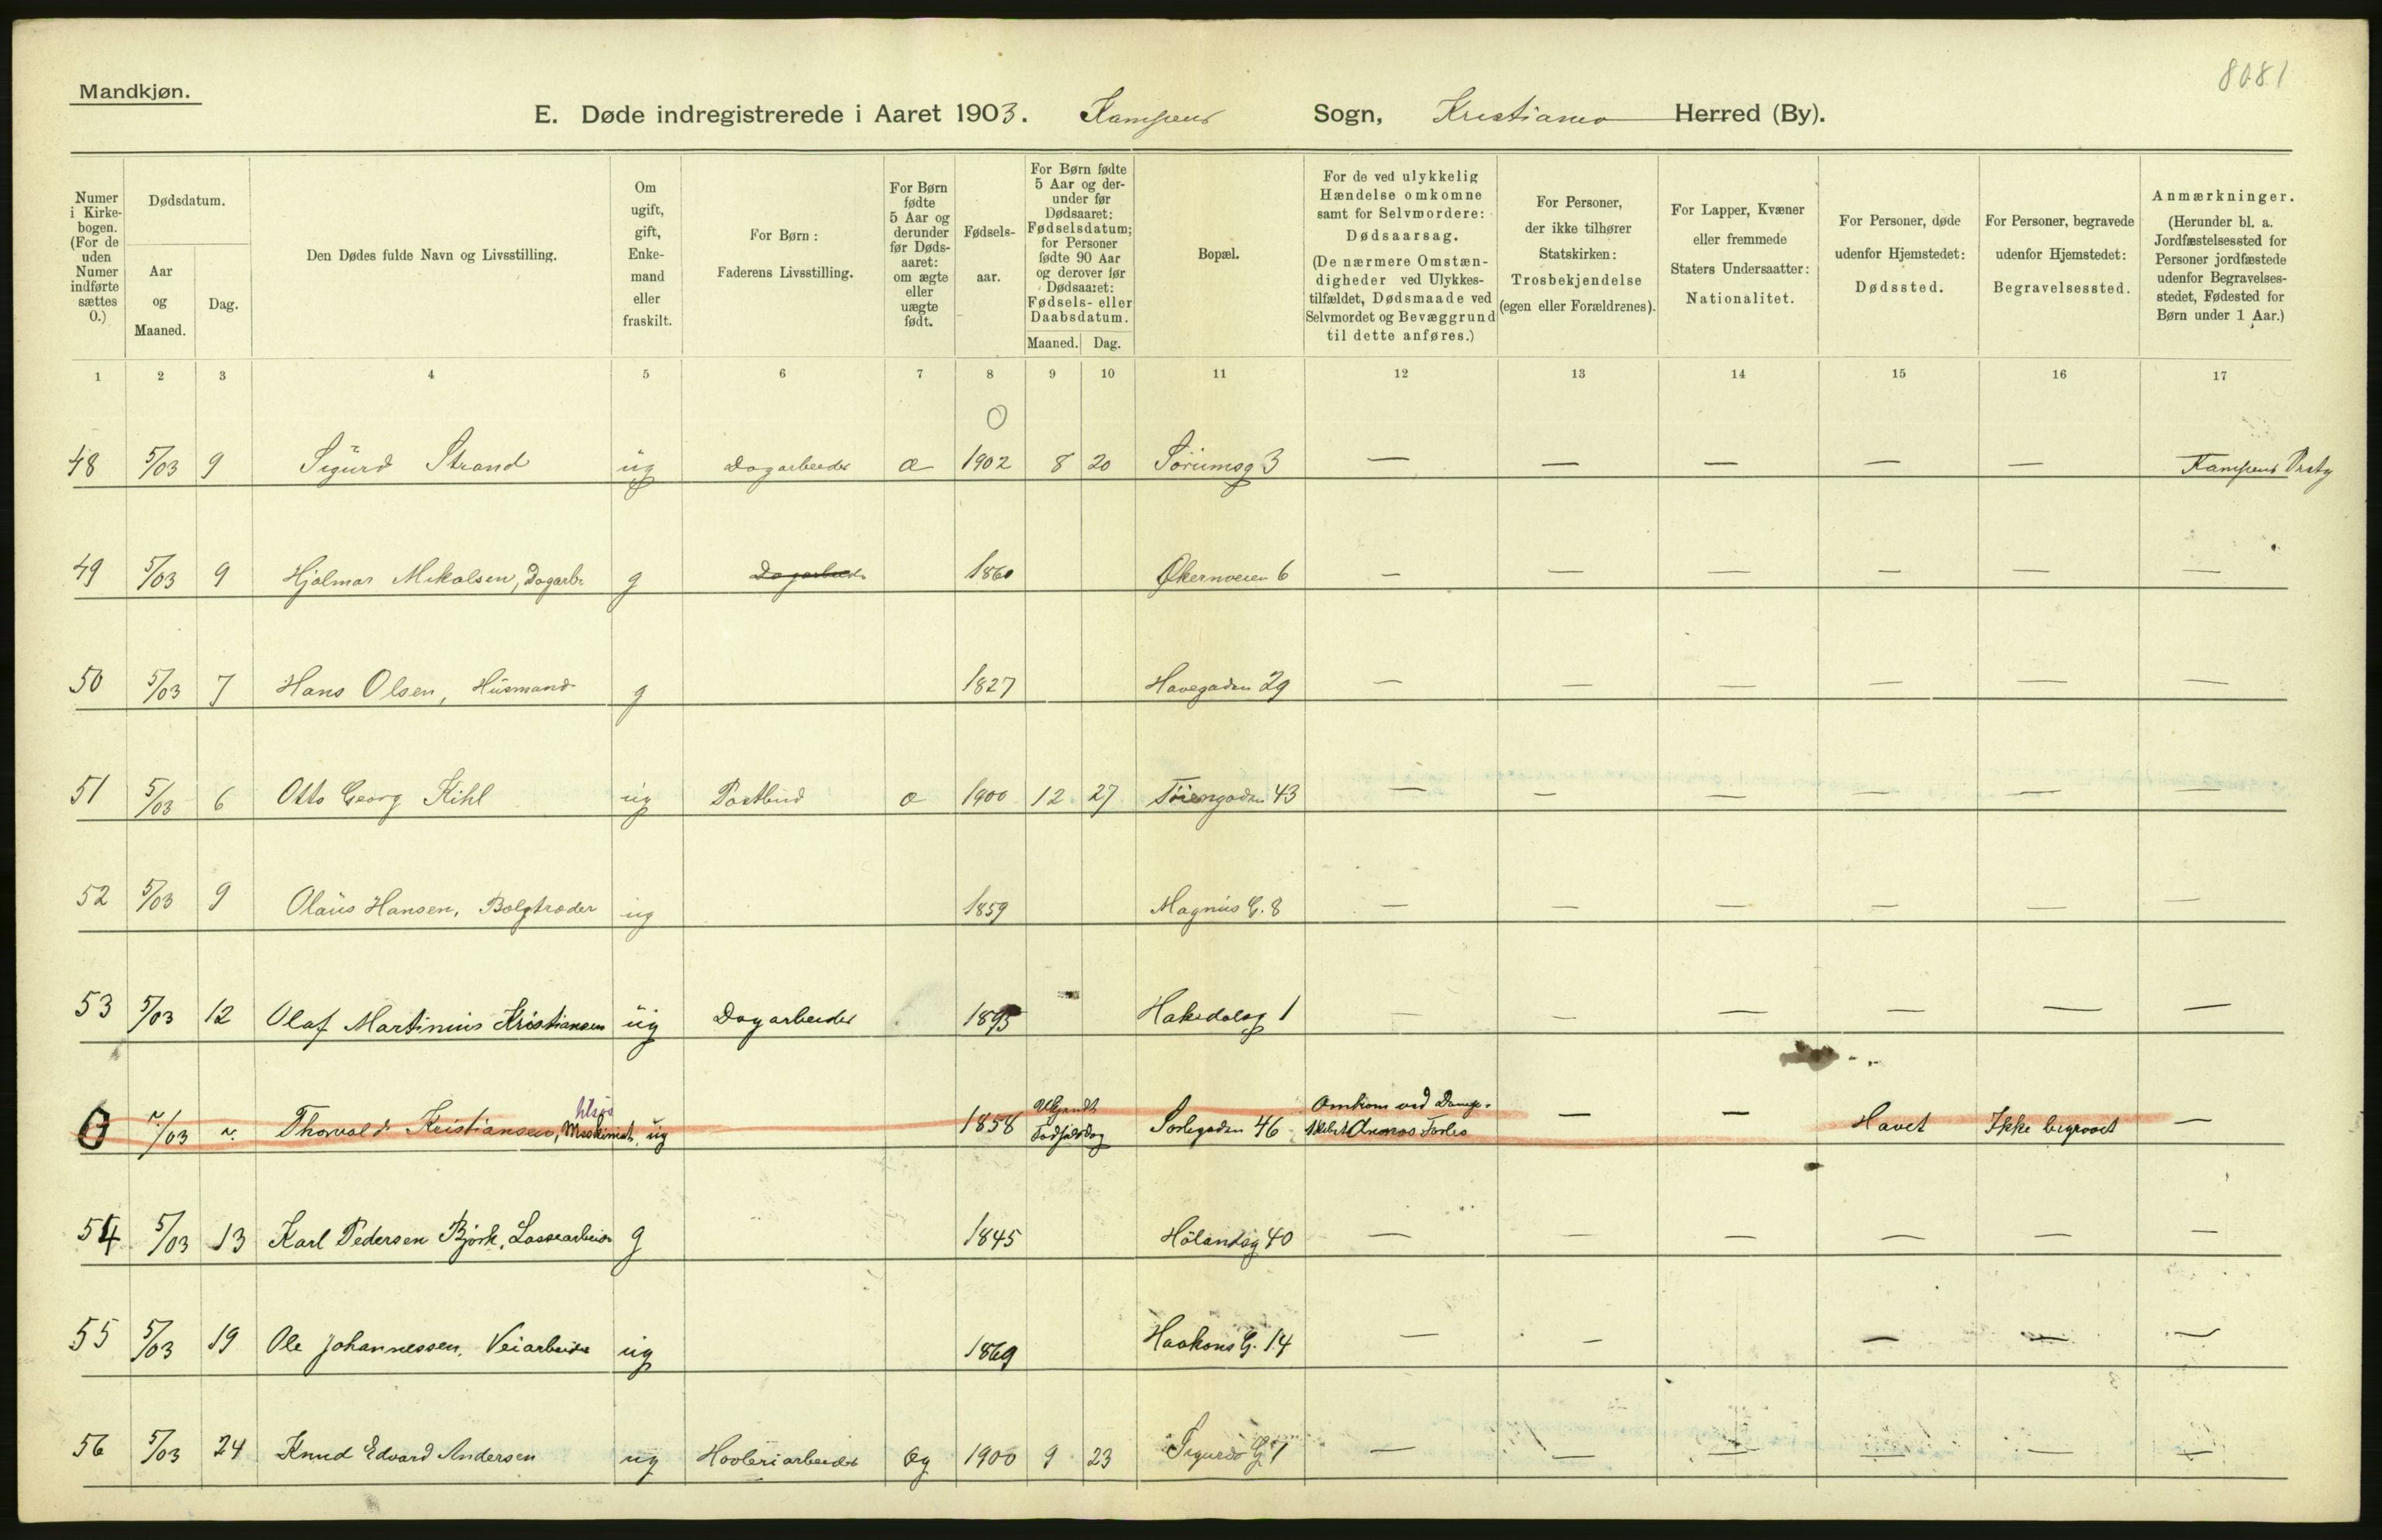 8081
Mandkjøn.
E. Døde indregistrerede i Aaret 1903. Kampens Sogn, Kristiania Herred (By).
Numer i Kirkebogen. (For de uden Numer indførte sættes 0.)
Dødsdatum.
Aar og Maaned.
Dag.
Den Dødes fulde Navn og Livsstilling.
Om ugift, gift, Enkemand eller fraskilt.
For Børn: Faderens Livsstilling.
For Børn fødte 5 Aar og derunder før Dødsaaret: om ægte eller uægte født.
Fødselsaar.
For Børn fødte 5 Aar og derunder før Dødsaaret: Fødselsdatum; for Personer fødte 90 Aar og derover før Dødsaaret: Fødsels- eller Daabsdatum.
Maaned. Dag.
Bopæl.
For de ved ulykkelig Hændelse omkomne samt for Selvmordere: Dødsaarsag. (De nærmere Omstændigheder ved Ulykkestilfældet, Dødsmaade ved Selvmordet og Bevæggrund til dette anføres.)
For Personer, der ikke tilhører Statskirken: Trosbekjendelse (egen eller Forældrenes).
For Lapper, Kvæner eller fremmede Staters Undersaatter: Nationalitet.
For Personer, døde udenfor Hjemstedet: Dødssted.
For Personer, begravede udenfor Hjemstedet: Begravelsessted.
Anmærkninger. (Herunder bl. a. Jordfæstelsessted for Personer jordfæstede udenfor Begravelsesstedet, Fødested for Børn under 1 Aar.)
1 2 3 4 5 6 7 8 9 10 11 12 13 14 15 16 17
0
48 5/03 9 Sigurd Strand ug Dagarbeider a 1902 8 20 Sörumsg 3 — — — — — Kampens
49 5/03 9 Hjalmar Mikalsen, Dagarb. g Dagarbeider 1860 Økernveien 6 — — — — — —
50 5/03 7 Hans Olsen, Husmand g 1827 Havegaden 29 — — — — — —
51 5/03 6 Otto Georg Kihl ug Postbud a 1900 12 27 Töiengaden 43 — — — — — —
52 5/03 9 Olaus Hansen, Bælgtræder ug 1859 Magnus G. 8 — — — — — —
53 5/03 12 Olaf Martinius Kristiansen ug Dagarbeider 1895 Hakedalsg 1 — — — — — —
0 /03 Thorvald Kristiansen, Maskinist, ug 1858 Ukjendt Födselsdag Sorlegaden 46 Omkom ved Damp- — — Havet Ikke begravet —
54 5/03 13 Karl Pedersen Björk, Lossearbeider g 1845 Hölandsg 40 — — — — — —
55 5/03 19 Ole Johannessen, Veiarbeider ug 1869 Haakons G. 14 — — — — —
56 5/03 24 Knud Edvard Andersen ug Høvleriarbeider Æg 1900 9 23 Sigurds G 1 — — — — — —